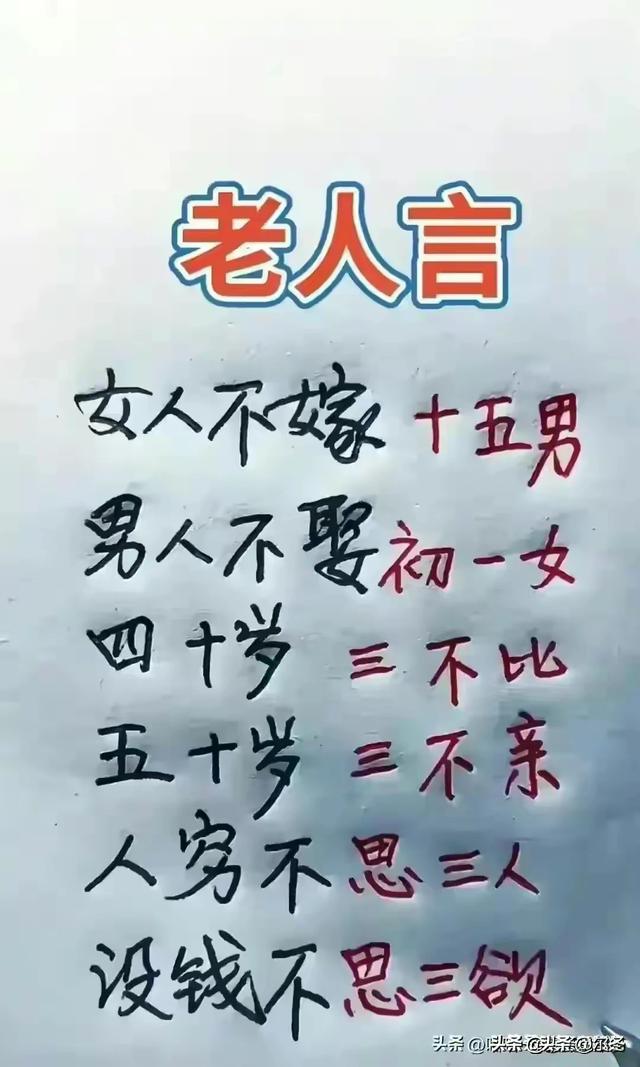 老人言
女人不嫁十五男
男人不娶初一女
四十岁三不比
五十岁三不亲
人穷不思三人
没钱不思三欲